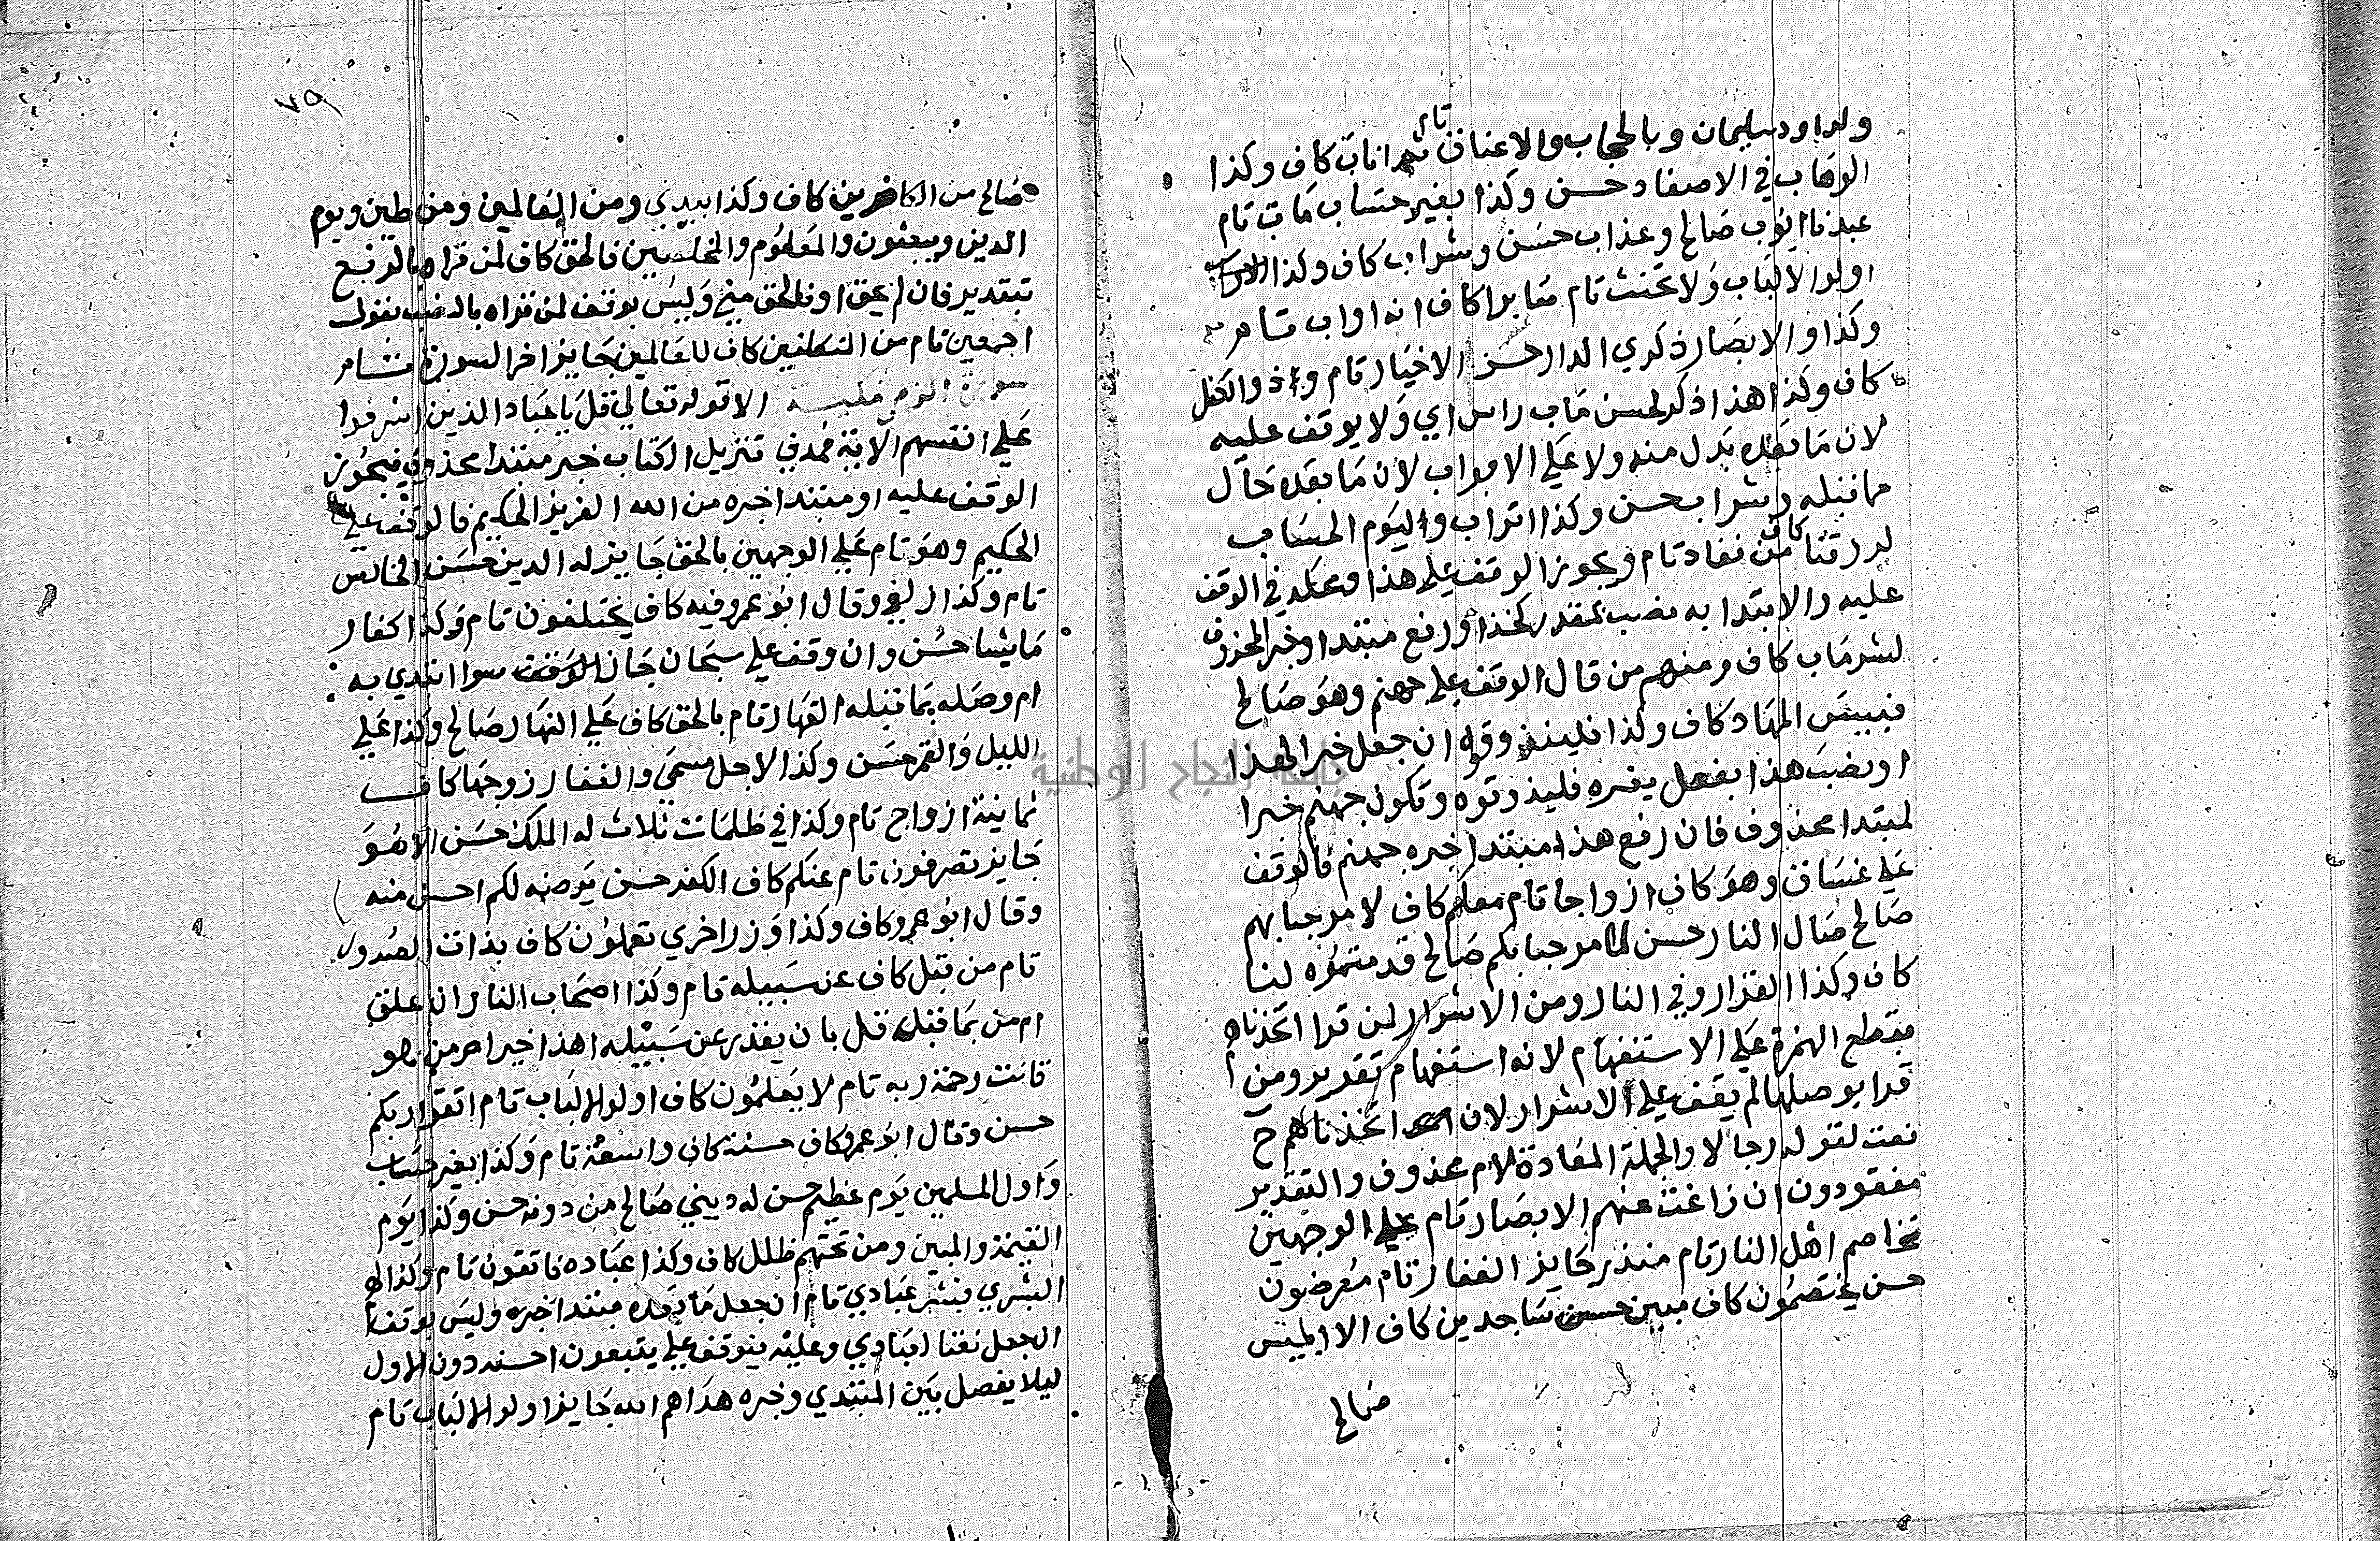 ولداود سليمان وبالحجاب والاعناق تام ثم اناب كاف وكذا
الوهاب في الاصفاد حسن وكذا بغير حساب مآب تام
عبدنا ايوب صالح وعذاب حسن وشراب كاف وكذا
اولوا الالباب ولا تحنث تام صابرا كاف انه اواب تام
وكذا والابصار ذكري الدار حسن الاخيار تام وذا الكفل
كاف وكذا هذا ذكر لحسن مآب راس اي ولا يوقف عليه
لان ما بعده بدل منه ولا علي الابواب لان ما بعده حال
مما قبله وشراب حسن وكذا اتراب وليوم الحساب
لرزقنا كاف من نفاد تام ويجوز الوقف علي هذا ومحله في الوقف
عليه والابتدا به نصب بمقدر كخذ او رفع مبتدا وخبر المحذوف
لشر مآب كاف ومنهم من قال الوقف علي جهنم وهو صالح
فبيس المهاد كاف وكذا فليذوقوه ان جعل خبرا لهذا
او نصب هذا بفعل يفسره فليذوقوه وتكون جهنم خبرا
لمبتدا محذوف فان رفع هذا مبتدا خبره جهنم فالوقف
علي غساق وهو كاف ازواجا تام معكم كاف لا مرحبا بهم
صالح صال النار حسن لا مرحبا بكم صالح قدمتموه لنا
كاف وكذا القرار وفي النار ومن الاشرار لمن قرا اتخذناهم
بقطع الهمزة علي الاستفهام لانه استفهام تقدير ومن
قرا بوصلها لم يقف علي الاشرار لان اتخذناهم ح
نعت لقوله رجالا والجملة المعادة لام محذوف والتقدير
مفقودون ان زاغت عنهم الابصار تام علي الوجهين
تخاصم اهل النار تام منذر جايز الغفار تام معرضون
حسن يختصمون كاف مبين حسن ساجدين كاف الا ابليس
صالح
٧٩
صالح من الكافرين كاف وكذا بيدي ومن العالمين ومن طين ويوم
الدين ويبعثون والمعلوم والمخلصين فالحق كاف لمن قراه بالرفع
بتقدير فانا الحق او فالحق مني وليس بوقف لمن قراه بالنصب بقوله
اجمعين تام من المتكلفين كاف للعالمين جايز اخر السورة تام
سورة الزمر مكية الا قوله تعالي قل يا عباد الذين اسرفوا
علي انفسهم الآية فمدني تنزيل الكتاب خبر مبتدا محذوف فيجوز
الوقف عليه او مبتدا خبره من الله العزيز الحكيم فالوقف علي
الحكيم وهو تام علي الوجهين بالحق جايز له الدين حسن الخالص
تام وكذا زلفي وقال ابو عمرو فيه كاف يختلفون تام وكذا كفار
ما يشا حسن وان وقف علي سبحان جاز الوقف سوا ابتدي به
ام وصله بما قبله القهار تام بالحق كاف علي النهار صالح وكذا علي
الليل والقمر حسن وكذا لاجل مسمي والغفار زوجها كاف
ثمانية ازواج تام وكذا في ظلمات ثلاث له الملك حسن الا هو
جايز تصرفون تام عنكم كاف الكفر حسن يرضه لكم احسن منه
وقال ابو عمرو كاف وكذا وزر اخري تعملون كاف بذات الصدور
تام من قبل كاف عن سبيله تام وكذا اصحاب النار ان علق
ام من بما قبله قل بان يقدر عن سبيله اهذا خير ام من هو
قانت رحمة ربه تام لا يعلمون كاف اولوا الالباب تام اتقوا ربكم
حسن وقال ابو عمرو كاف حسنة كاف واسعة تام وكذا بغير حساب
واول المسلمين يوم عظيم حسن له ديني صالح من دونه حسن وكذا يوم
القيمة والمبين ومن تحتهم ظلل كاف وكذا عباده فاتقون تام وكذا لهم
البشري فبشر عبادي تام ان جعل ما بعده مبتدا خبره وليس بوقف
ان جعل نعتا لعبادي وعليه يتوقف علي يتبعون احسنه دون الاول
ليلا يفصل بين المبتدي وخبره هداهم الله جايز اولوا الالباب تام
جامعة النجاح الوطنية